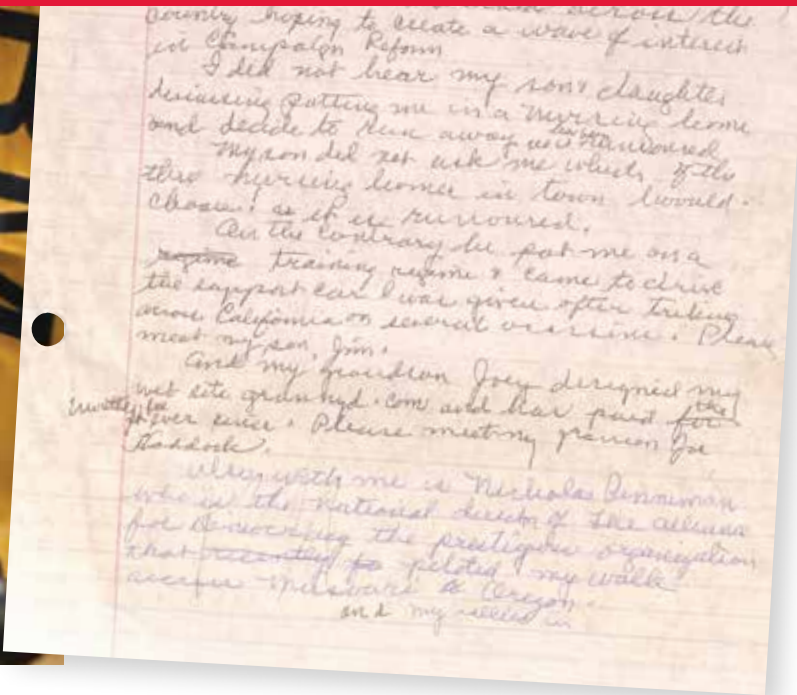 across the
Country hoping to create a wave of interest
in Campaign Reform
I did not hear my son & daughter
discussing putting me in a Nursing home
and decide to run away as is rumoured
My son did not ask me which of the
three nursing homes in town I would
choose as it is rumoured.
On the contrary he put me on a
regime training regime & came to drive
the support car I was given after
across California on several occasions. Please
meet my son, Jim.
And my grandson Joey designed my
web site grannyd.com and has paid for the
ever since. Please meet my grandson Joe
Haddock.
Also with me is Nicholas Penniman
who is the national director of the Alliance
for Democracy the prestigious organization
that recently piloted my walk
across Missouri to Oregon.
and my in